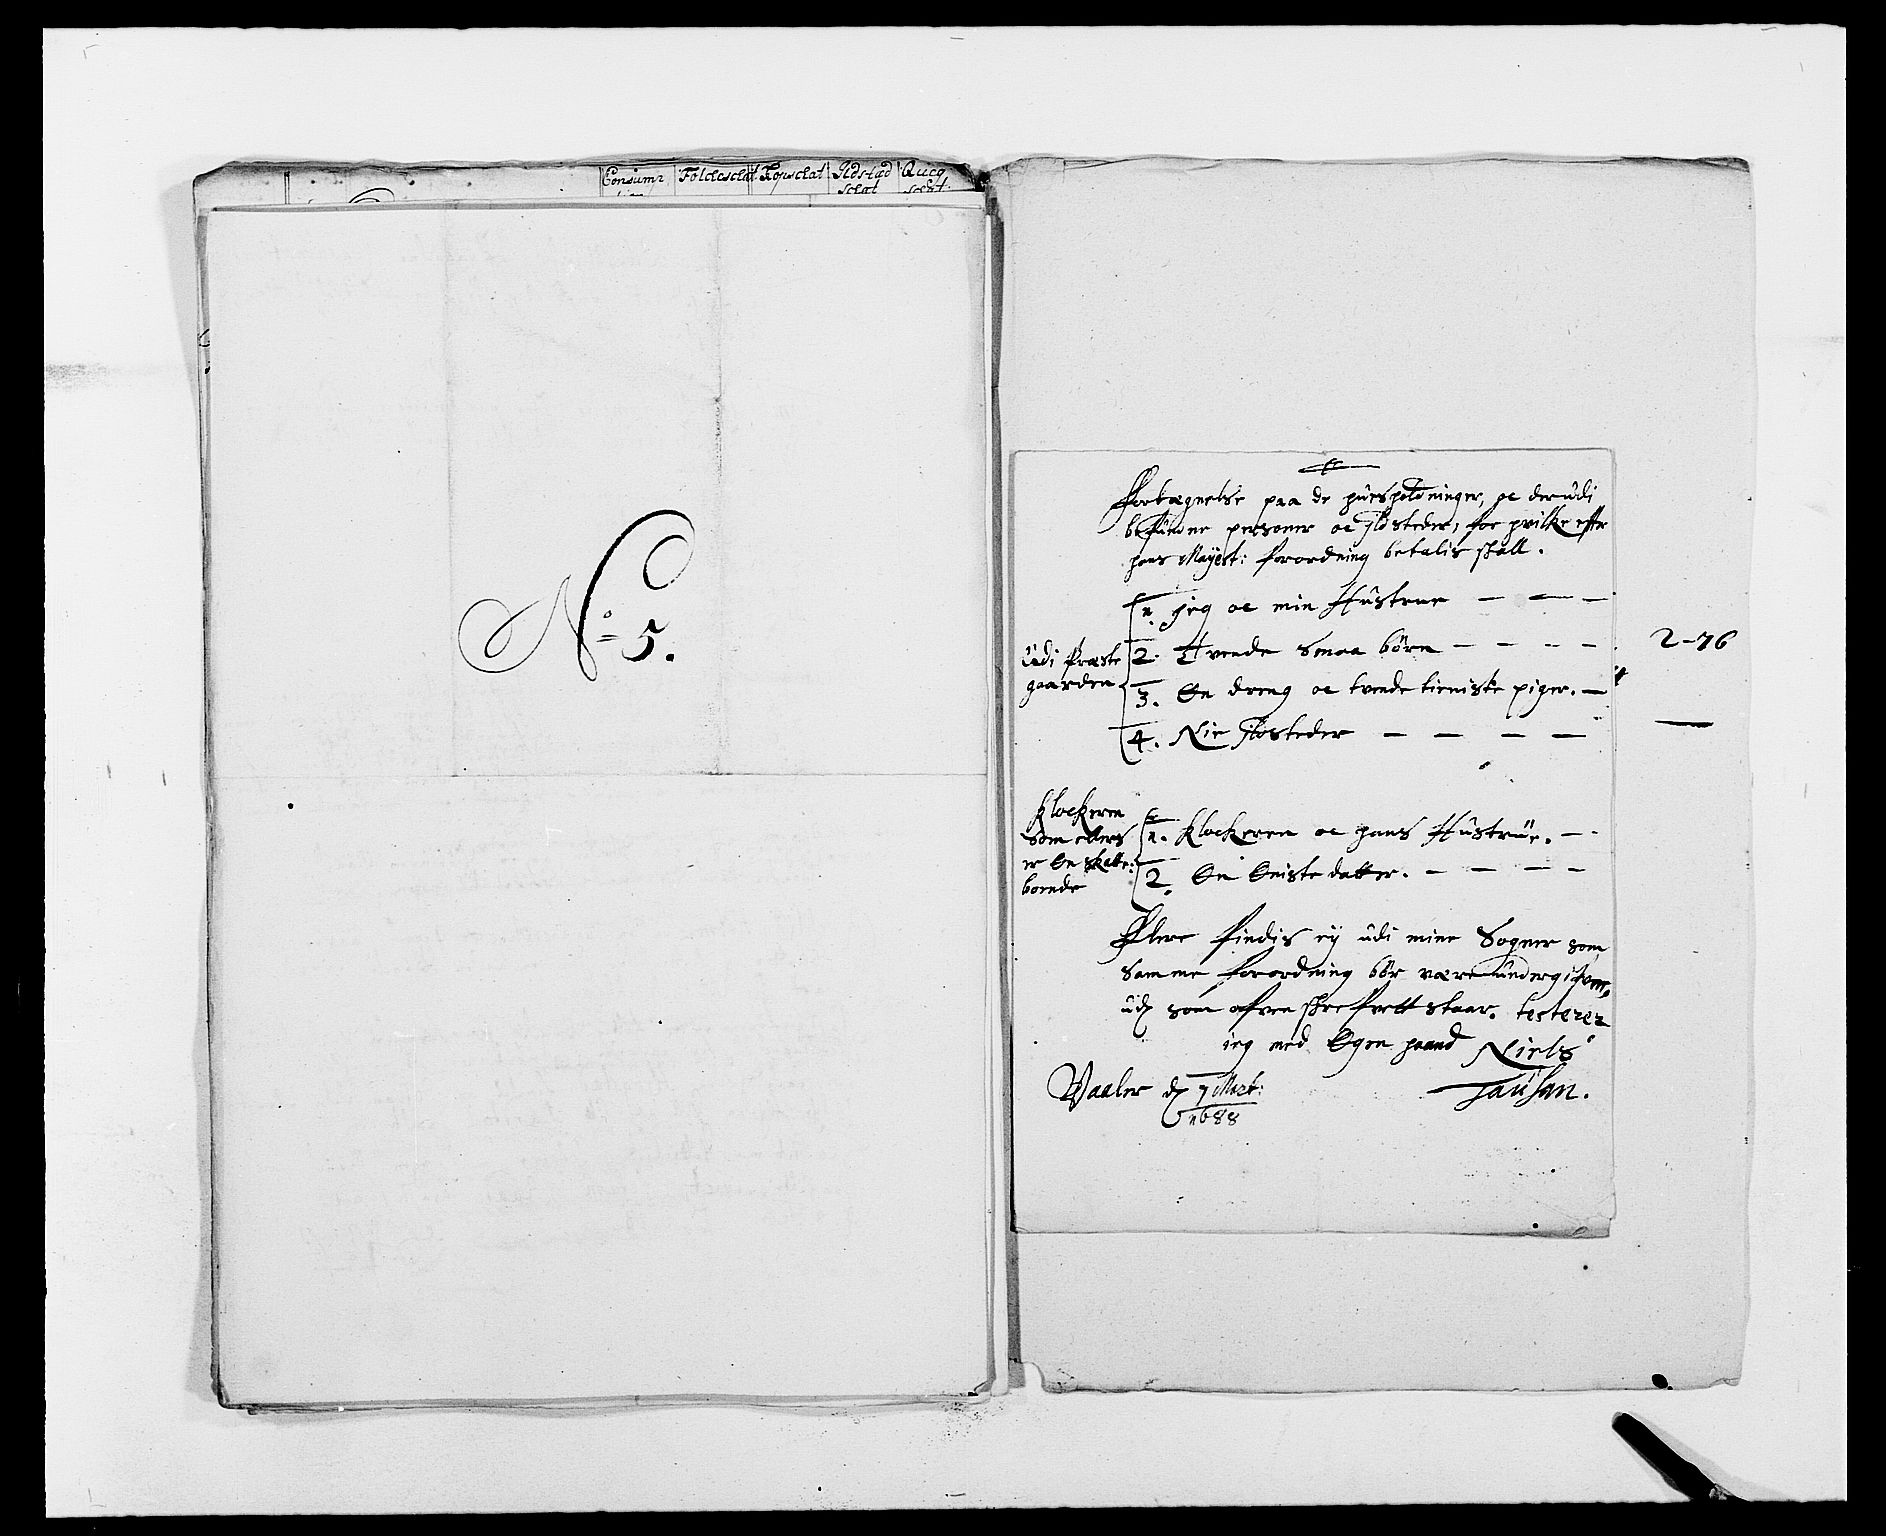 Consum: Folckeschat Kopschat Ildstad Qucq
schat schat
No 5.
Fortægnelse paa de huusholdninger, oc derudi
befundne personer oc Ildsteder, for hvilke efter
hans Mayest: forordning betalis skall.
Udi Præste
gaarden
1. Jeg oc min Hüstrue
2. Tvende smaa börn
3. En dreng oc tvende tieniste piger.
4. Nie Ildsteder
2-76
Klockeren
som ellers
er En skatte:
bonde
1. Klockeren oc hans Hüstrüe.
2. En Eniste datter.
Flere findis ey udi mine Sogner som
samme forordning bör være undergifven,
som ofven skrefvett staar. testerer
ieg med Egen haand Niels
Tausan.
Vaaler d 7 Mart:
1688